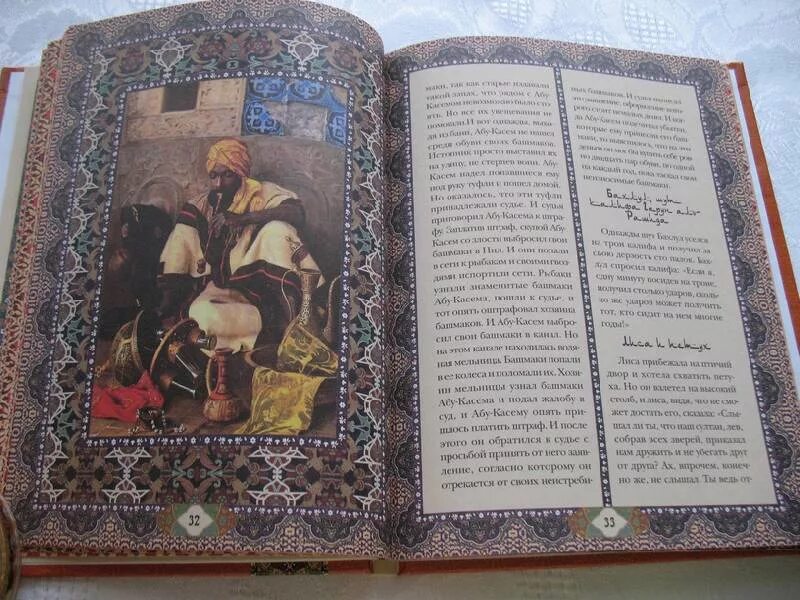 32
маки, так как старые издавали
такой запах, что рядом с Абу-
Касемом невозможно было сто-
ять. Но все их увещевания не
помогали. И вот однажды, выхо-
дя из бани, Абу-Касем не нашел
среди обуви своих башмаков.
Истопник просто выставил их
на улицу, не стерпев вони. Абу-
Касем надел попавшиеся ему
под руку туфли и пошел домой.
Но оказалось, что эти туфли
принадлежали судье. И судья
приговорил Абу-Касема к штра-
фу. Заплатив штраф, скупой Абу-
Касем со злости выбросил свои
башмаки в Нил. И они попали
в сети к рыбакам и своими гвоз-
дями испортили сети. Рыбаки
узнали знаменитые башмаки
Абу-Касема, пошли к судье, и
тот опять оштрафовал хозяина
башмаков. И Абу-Касем выбро-
сил свои башмаки в канал. Но
на этом канале находилась водя-
ная мельница. Башмаки попали
в ее колеса и поломали их. Хозя-
ин мельницы узнал башмаки
Абу-Касема и подал жалобу в
суд, и Абу-Касему опять при-
шлось платить штраф. И после
этого он обратился к судье с
просьбой принять от него заяв-
ление, согласно которому он
отрекается от своих неистреби-
мых башмаков. И судья
заявление, оформление кото-
рого стоит немалых денег. И ког-
да Абу-Касем подсчитал убытки,
которые ему принесли его баш-
маки, то выяснилось, что на эти
деньги он мог бы купить себе ров-
но двадцать пар обуви, по одной
на каждый год, пока таскал свои
неизносимые башмаки.
Бахлул, шут
калифа Гарун аль-
Рашида
Однажды шут Бахлул уселся
на трон калифа и получил за
свою дерзость сто палок. Бах-
лул спросил калифа: «Если я,
одну минуту посидев на троне,
получил столько ударов, сколь-
ко же ударов может получить
тот, кто сидит на нем многие
годы!»
Лиса и петух
Лиса прибежала на птичий
двор и хотела схватить пету-
ха. Но он взлетел на высокий
столб, и лиса, видя, что не смо-
жет достать его, сказала: «Слы-
шал ли ты, что наш султан, лев,
собрав всех зверей, приказал
нам дружить и не убегать друг
от друга? Ах, впрочем, конеч-
но же, не слышал. Ты ведь от-
33